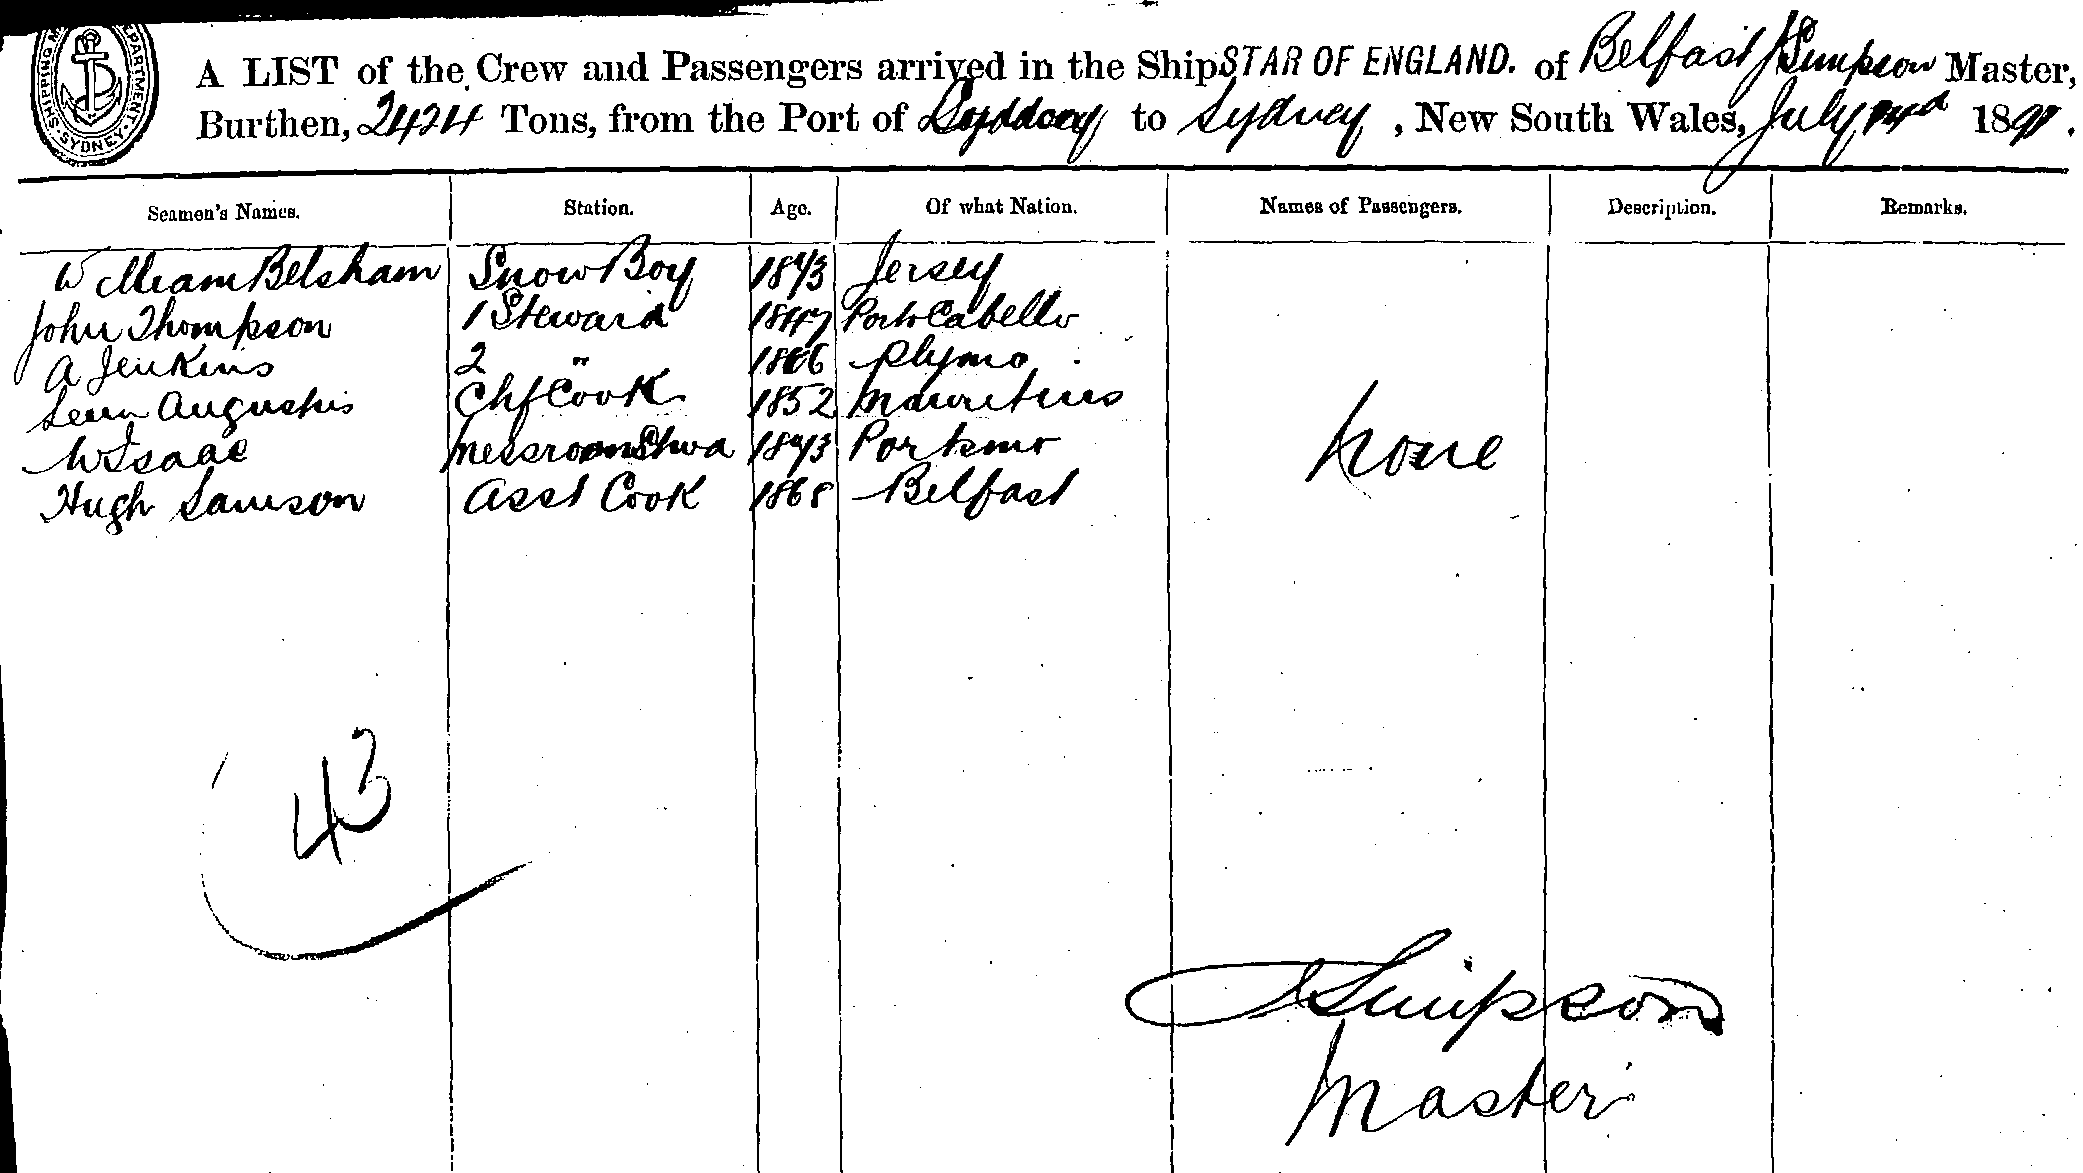 SHIPPING M DEPARTMENT. SYDNEY
A LIST of the Crew and Passengers arrived in the Ship STAR OF ENGLAND. of Belfast J Simpson Master,
Burthen, 2424 Tons, from the Port of to Sydney, New South Wales, July 1891.
Seamen's Names. Station. Age. Of what Nation. Names of Passengers. Description. Remarks.
William Belsham Snow Boy 1873 Jersey
John Thompson 1 Steward 1847 Porto Cabello
A Jenkins 2 " 1866 Plymo
Augustus Chf Cook 1852 Mauritius
W Isaac Messroom Stwd 1873 Portsmo
Hugh Samson Asst Cook 1868 Belfast
None
43
J Simpson
Master